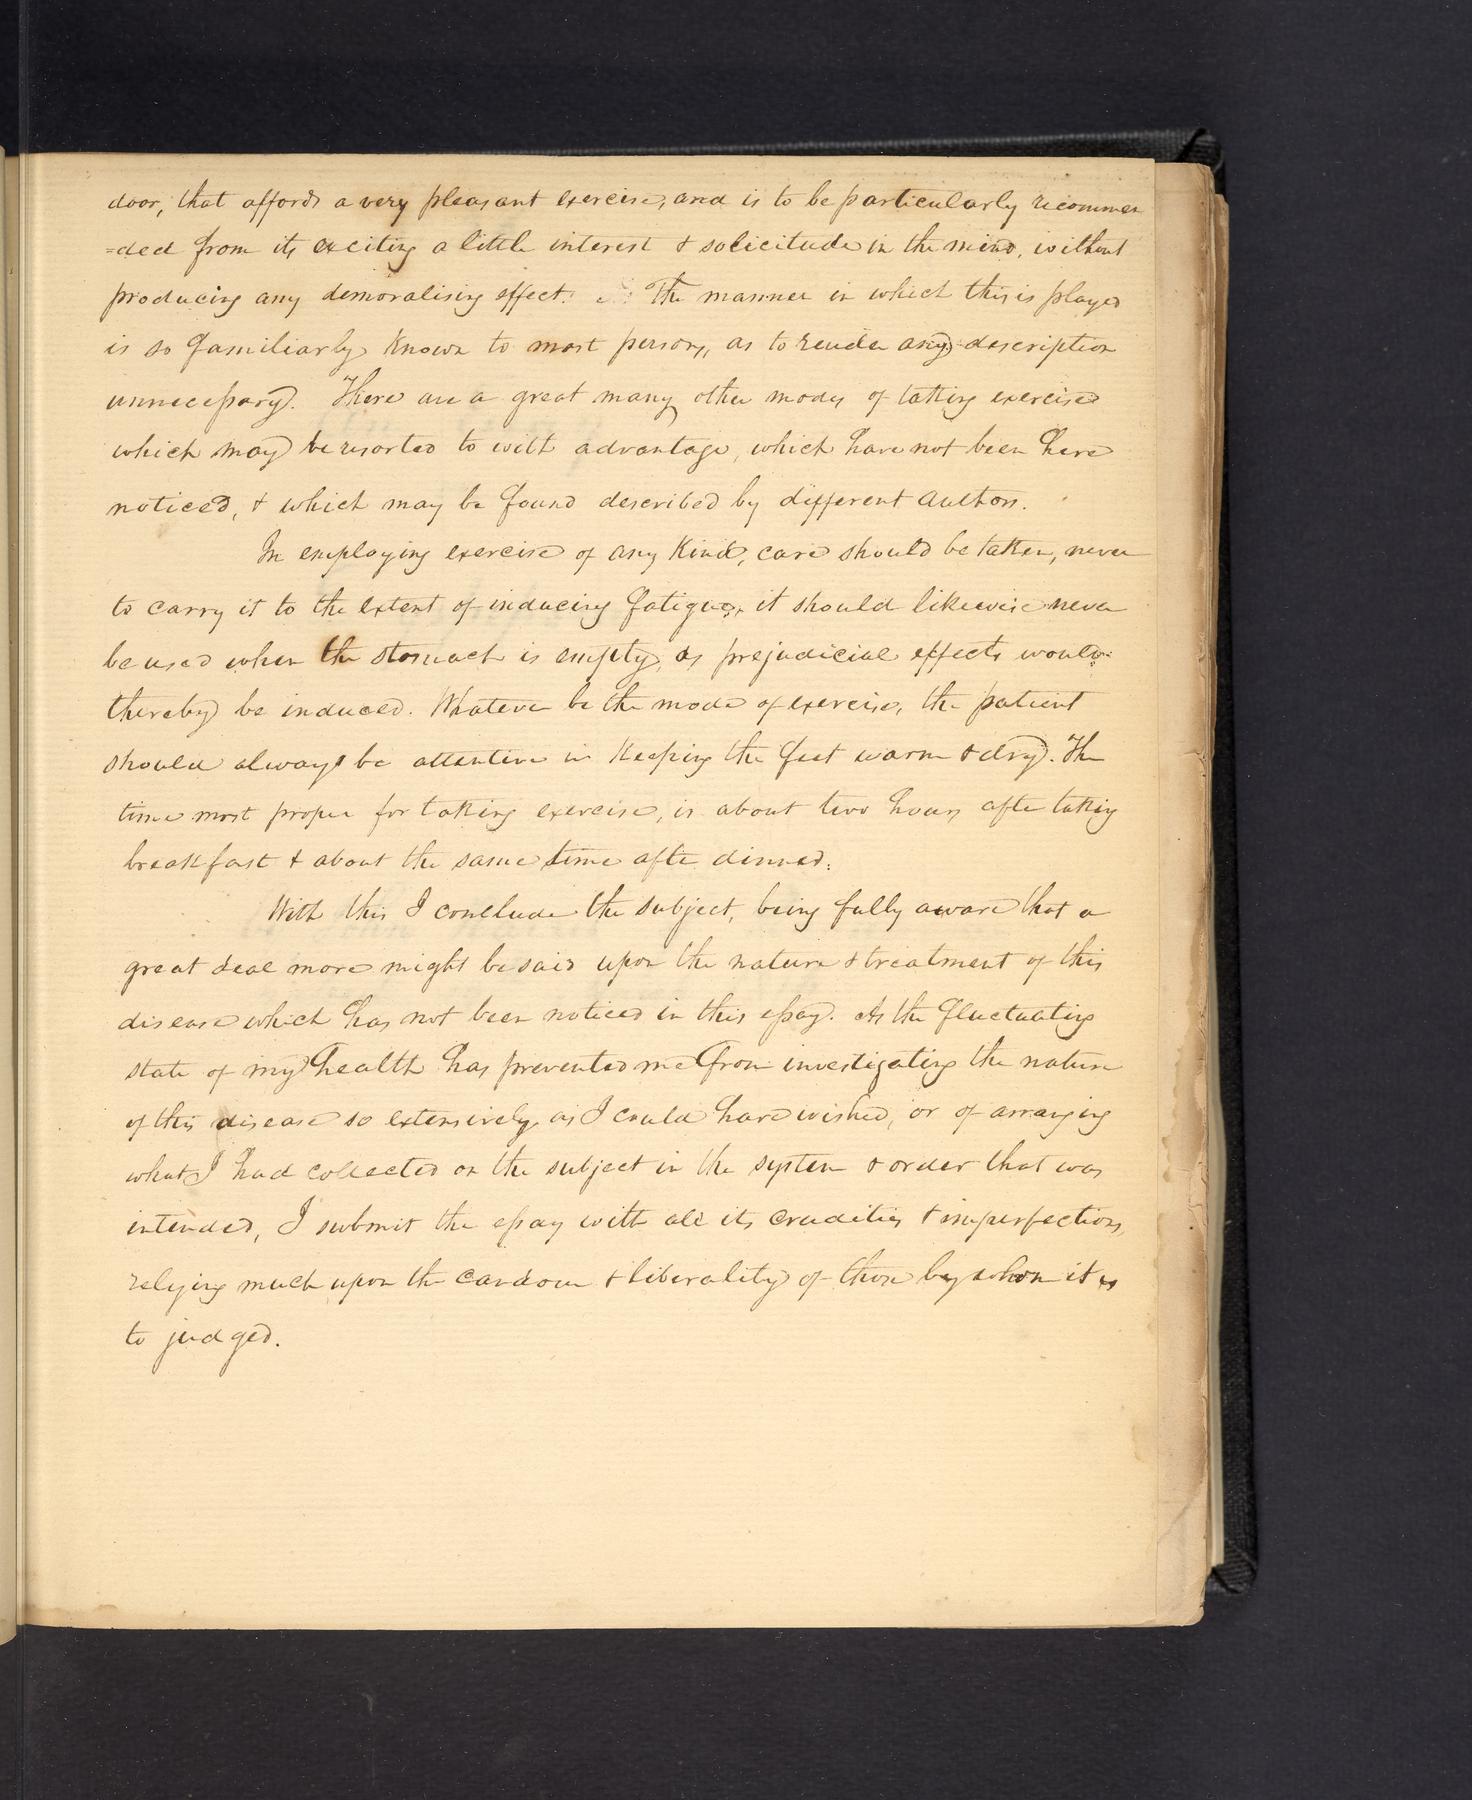 door, that affords a very pleasant exercise, and is to be particularly recommen
=ded from its exciting a little interest & solicitude in the mind, without
producing any demoralising effect. The manner in which this is played
is so familiarly known to most persons, as to render any description
unnecessary. There are a great many other modes of taking exercise
which may be resorted to with advantage, which have not been here
noticed, & which may be found described by different authors.
In employing exercise of any kind, care should be taken, never
to carry it to the extent of inducing fatigue, it should likewise never
be used when the stomach is empty, as prejudicial effects would
thereby be induced. Whatever be the mode of exercise, the patient
should always be attentive in keeping the feet warm & dry. The
time most proper for taking exercise, is about two hours after taking
breakfast & about the same time after dinner.
With this I conclude the subject, being fully aware that a
great deal more might be said upon the nature & treatment of this
disease which has not been noticed in this essay. As the fluctuating
state of my health has prevented me from investigating the nature
of this disease so extensively as I could have wished, or of arranging
what I had collected on the subject in the system & order that was
intended, I submit the essay with all its crudities & imperfections,
relying much upon the candour & liberality of those by whom it is
to judged.